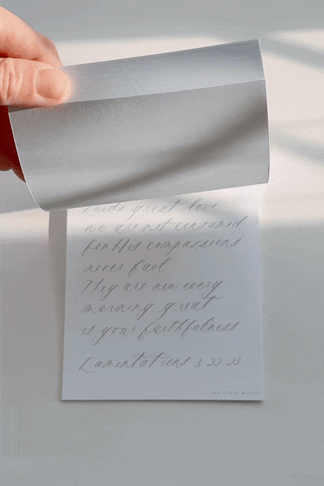 Lords great love
we are not consumed
for His compassions
never fail
They are new every
morning great
is your faithfulness
Lamentations 3 22 23